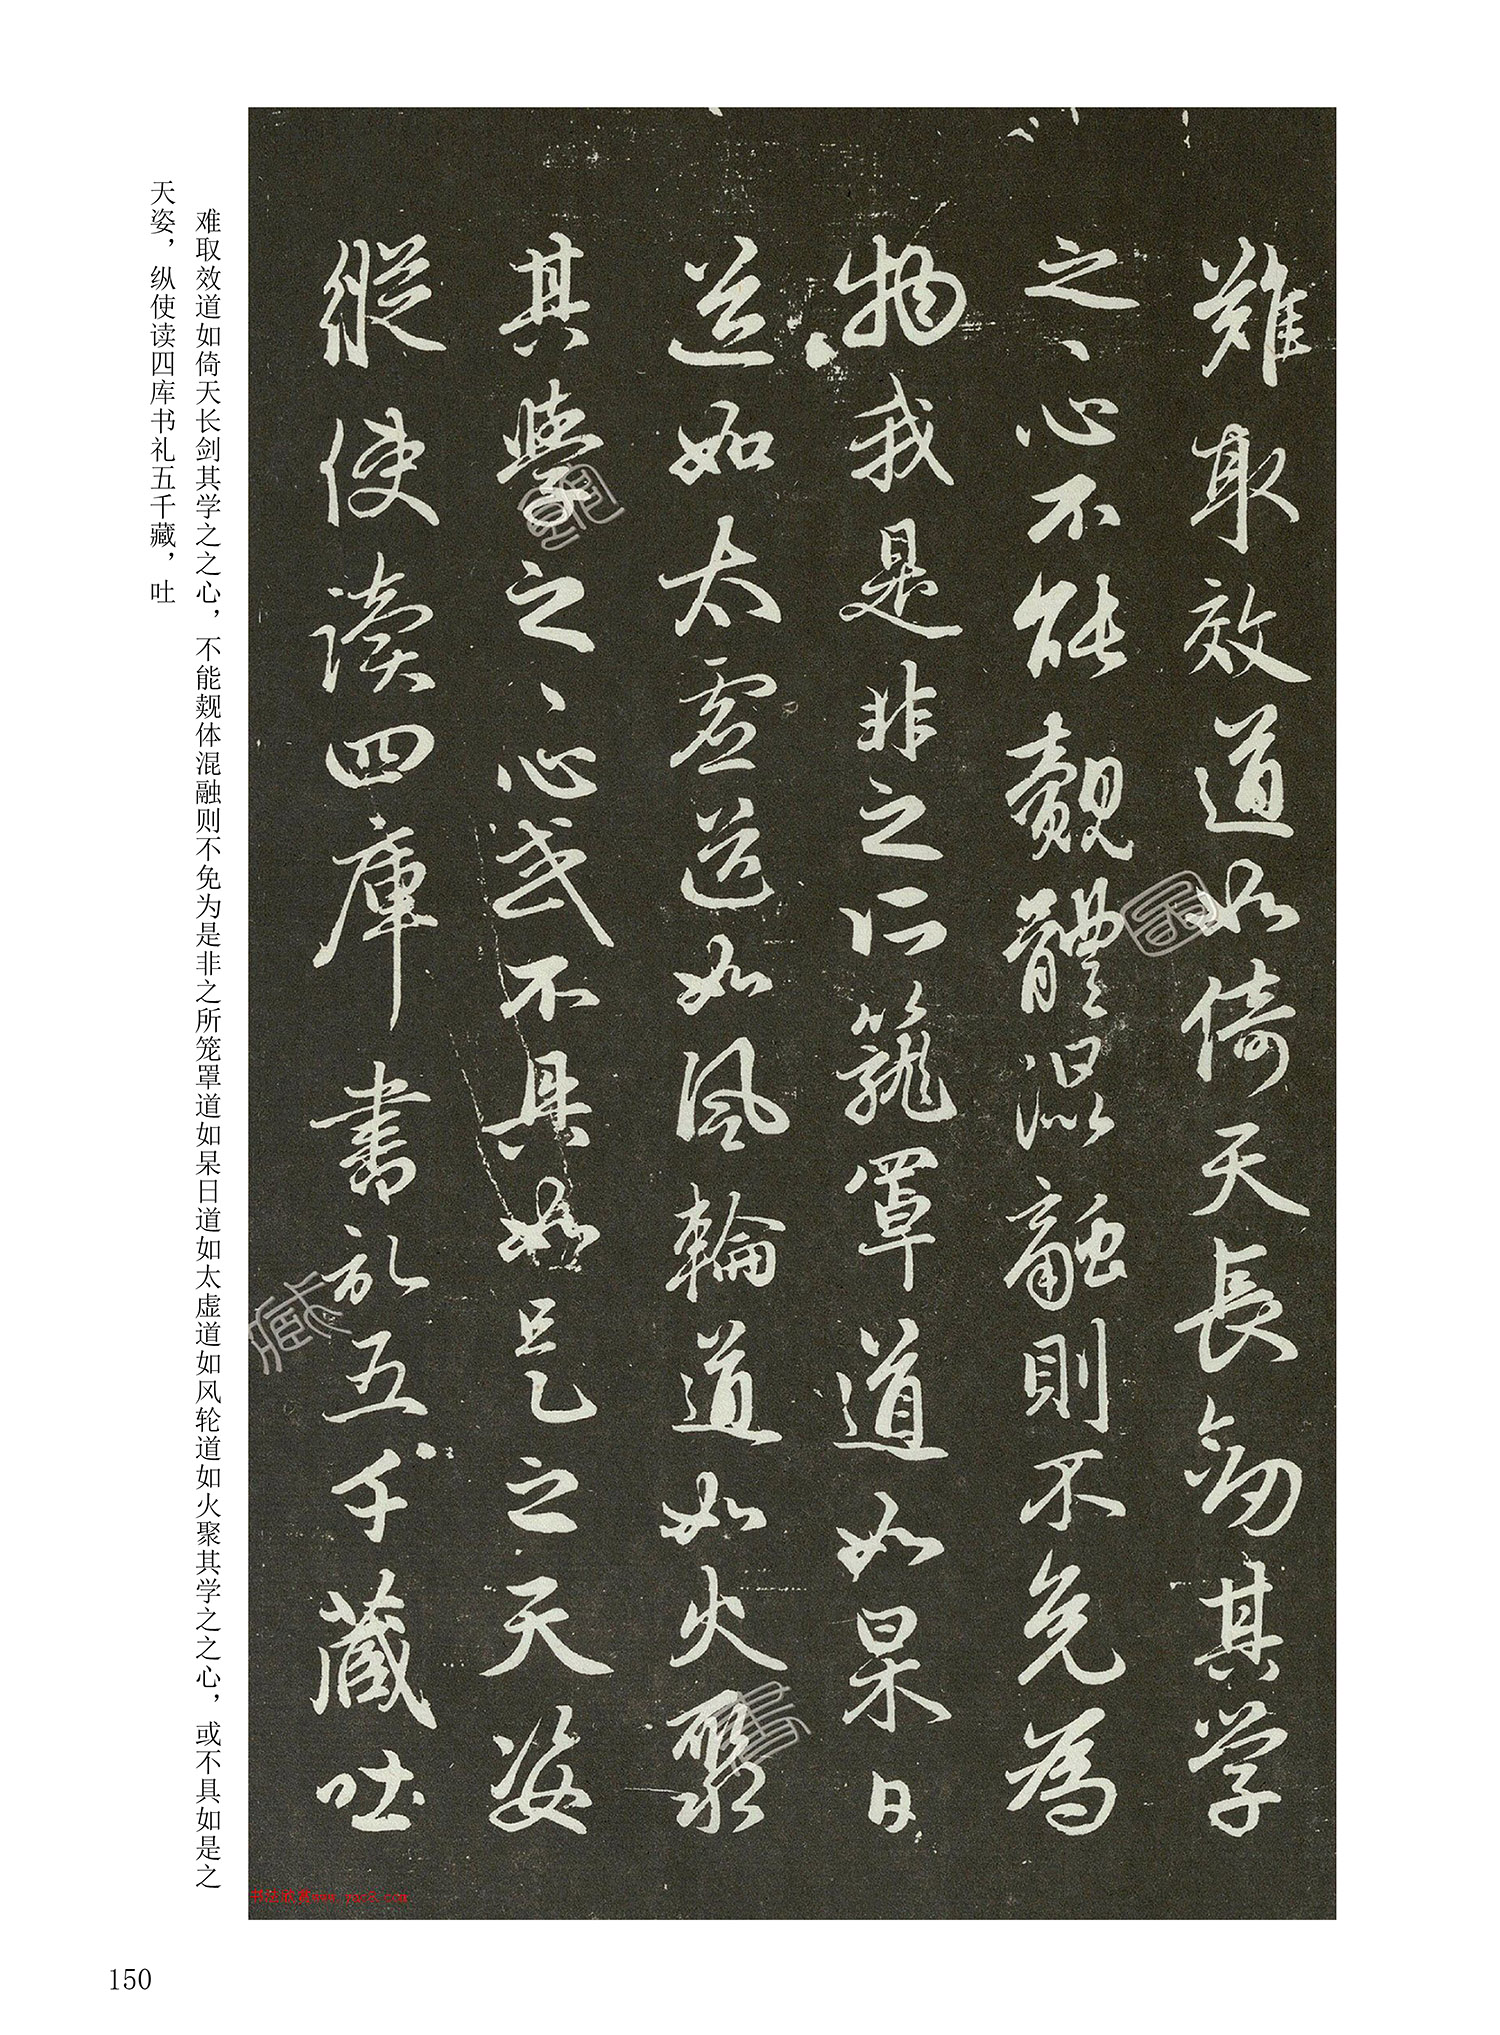 難取效道如倚天長劒其学
之々心不能覿體混融則不免為
物我是非之所籠罩道如杲日
道如太虚道如風輪道如火聚
其學之々心或不具如是之天姿
縱使读四庫書於五千藏吐
难取效道如倚天长剑其学之之心，不能觌体混融则不免为是非之所笼罩道如杲日道如太虚道如风轮道如火聚其学之之心，或不具如是之
天姿，纵使读四库书礼五千藏，吐
150